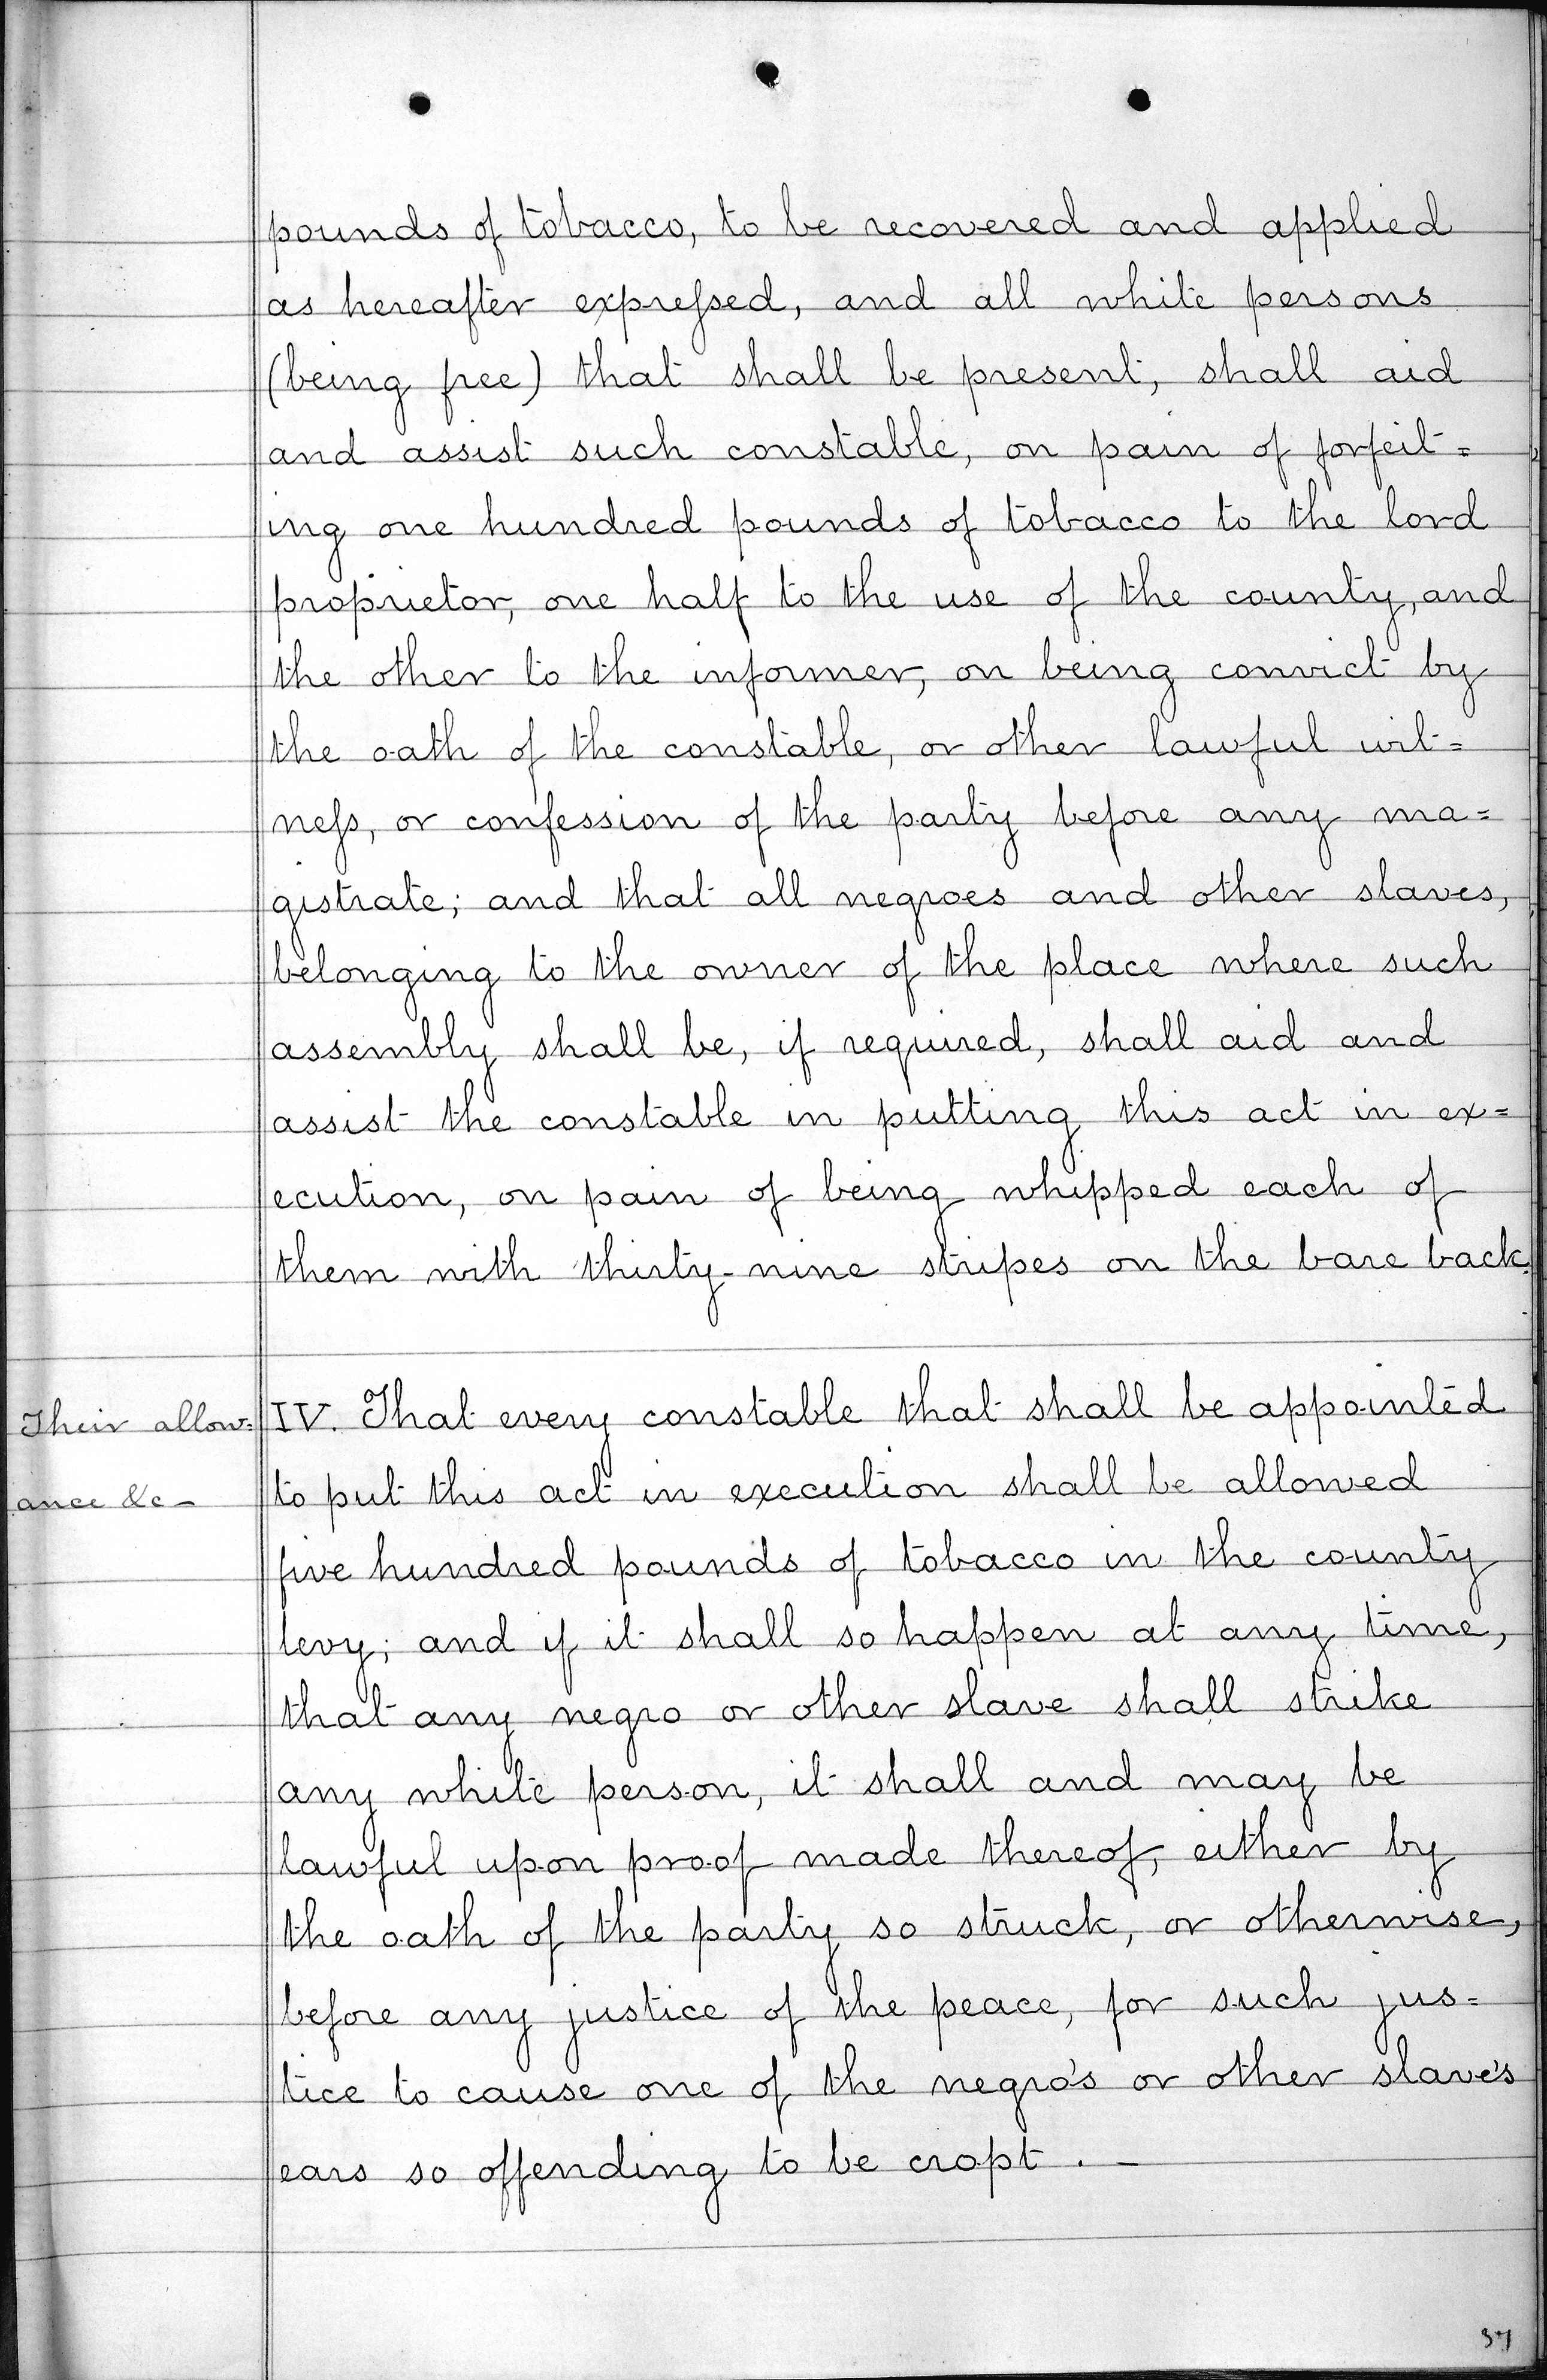 pounds of tobacco, to be recovered and applied
as hereafter expreſsed, and all white persons
(being free) that shall be present, shall aid
and assist such constable, on pain of forfeit=
ing one hundred pounds of tobacco to the lord
proprietor, one half to the use of the county, and
the other to the informer, on being convict by
the oath of the constable, or other lawful wit=
neſs, or confession of the party before any ma=
gistrate; and that all negroes and other slaves,
belonging to the owner of the place where such
assembly shall be, if required, shall aid and
assist the constable in putting this act in ex=
ecution, on pain of being whipped each of
them with thirty-nine stripes on the bare back.
Their allow=
ance &c-
IV. That every constable that shall be appointed
to put this act in execution shall be allowed
five hundred pounds of tobacco in the county
levy; and if it shall so happen at any time,
that any negro or other slave shall strike
any white person, it shall and may be
lawful upon proof made thereof, either by
the oath of the party so struck, or otherwise,
before any justice of the peace, for such jus=
tice to cause one of the negro's or other slave's
ears so offending to be cropt. -
37